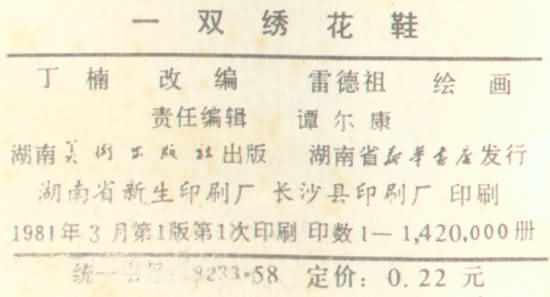 一双绣花鞋
丁楠 改编 雷德祖 绘画
责任编辑 谭尔康
湖南美术出版社出版 湖南省新华书店发行
湖南省新生印刷厂 长沙县印刷厂 印刷
1981年3月第1版第1次印刷 印数1—1,420,000册
统一书号:8233·58 定价:0.22元